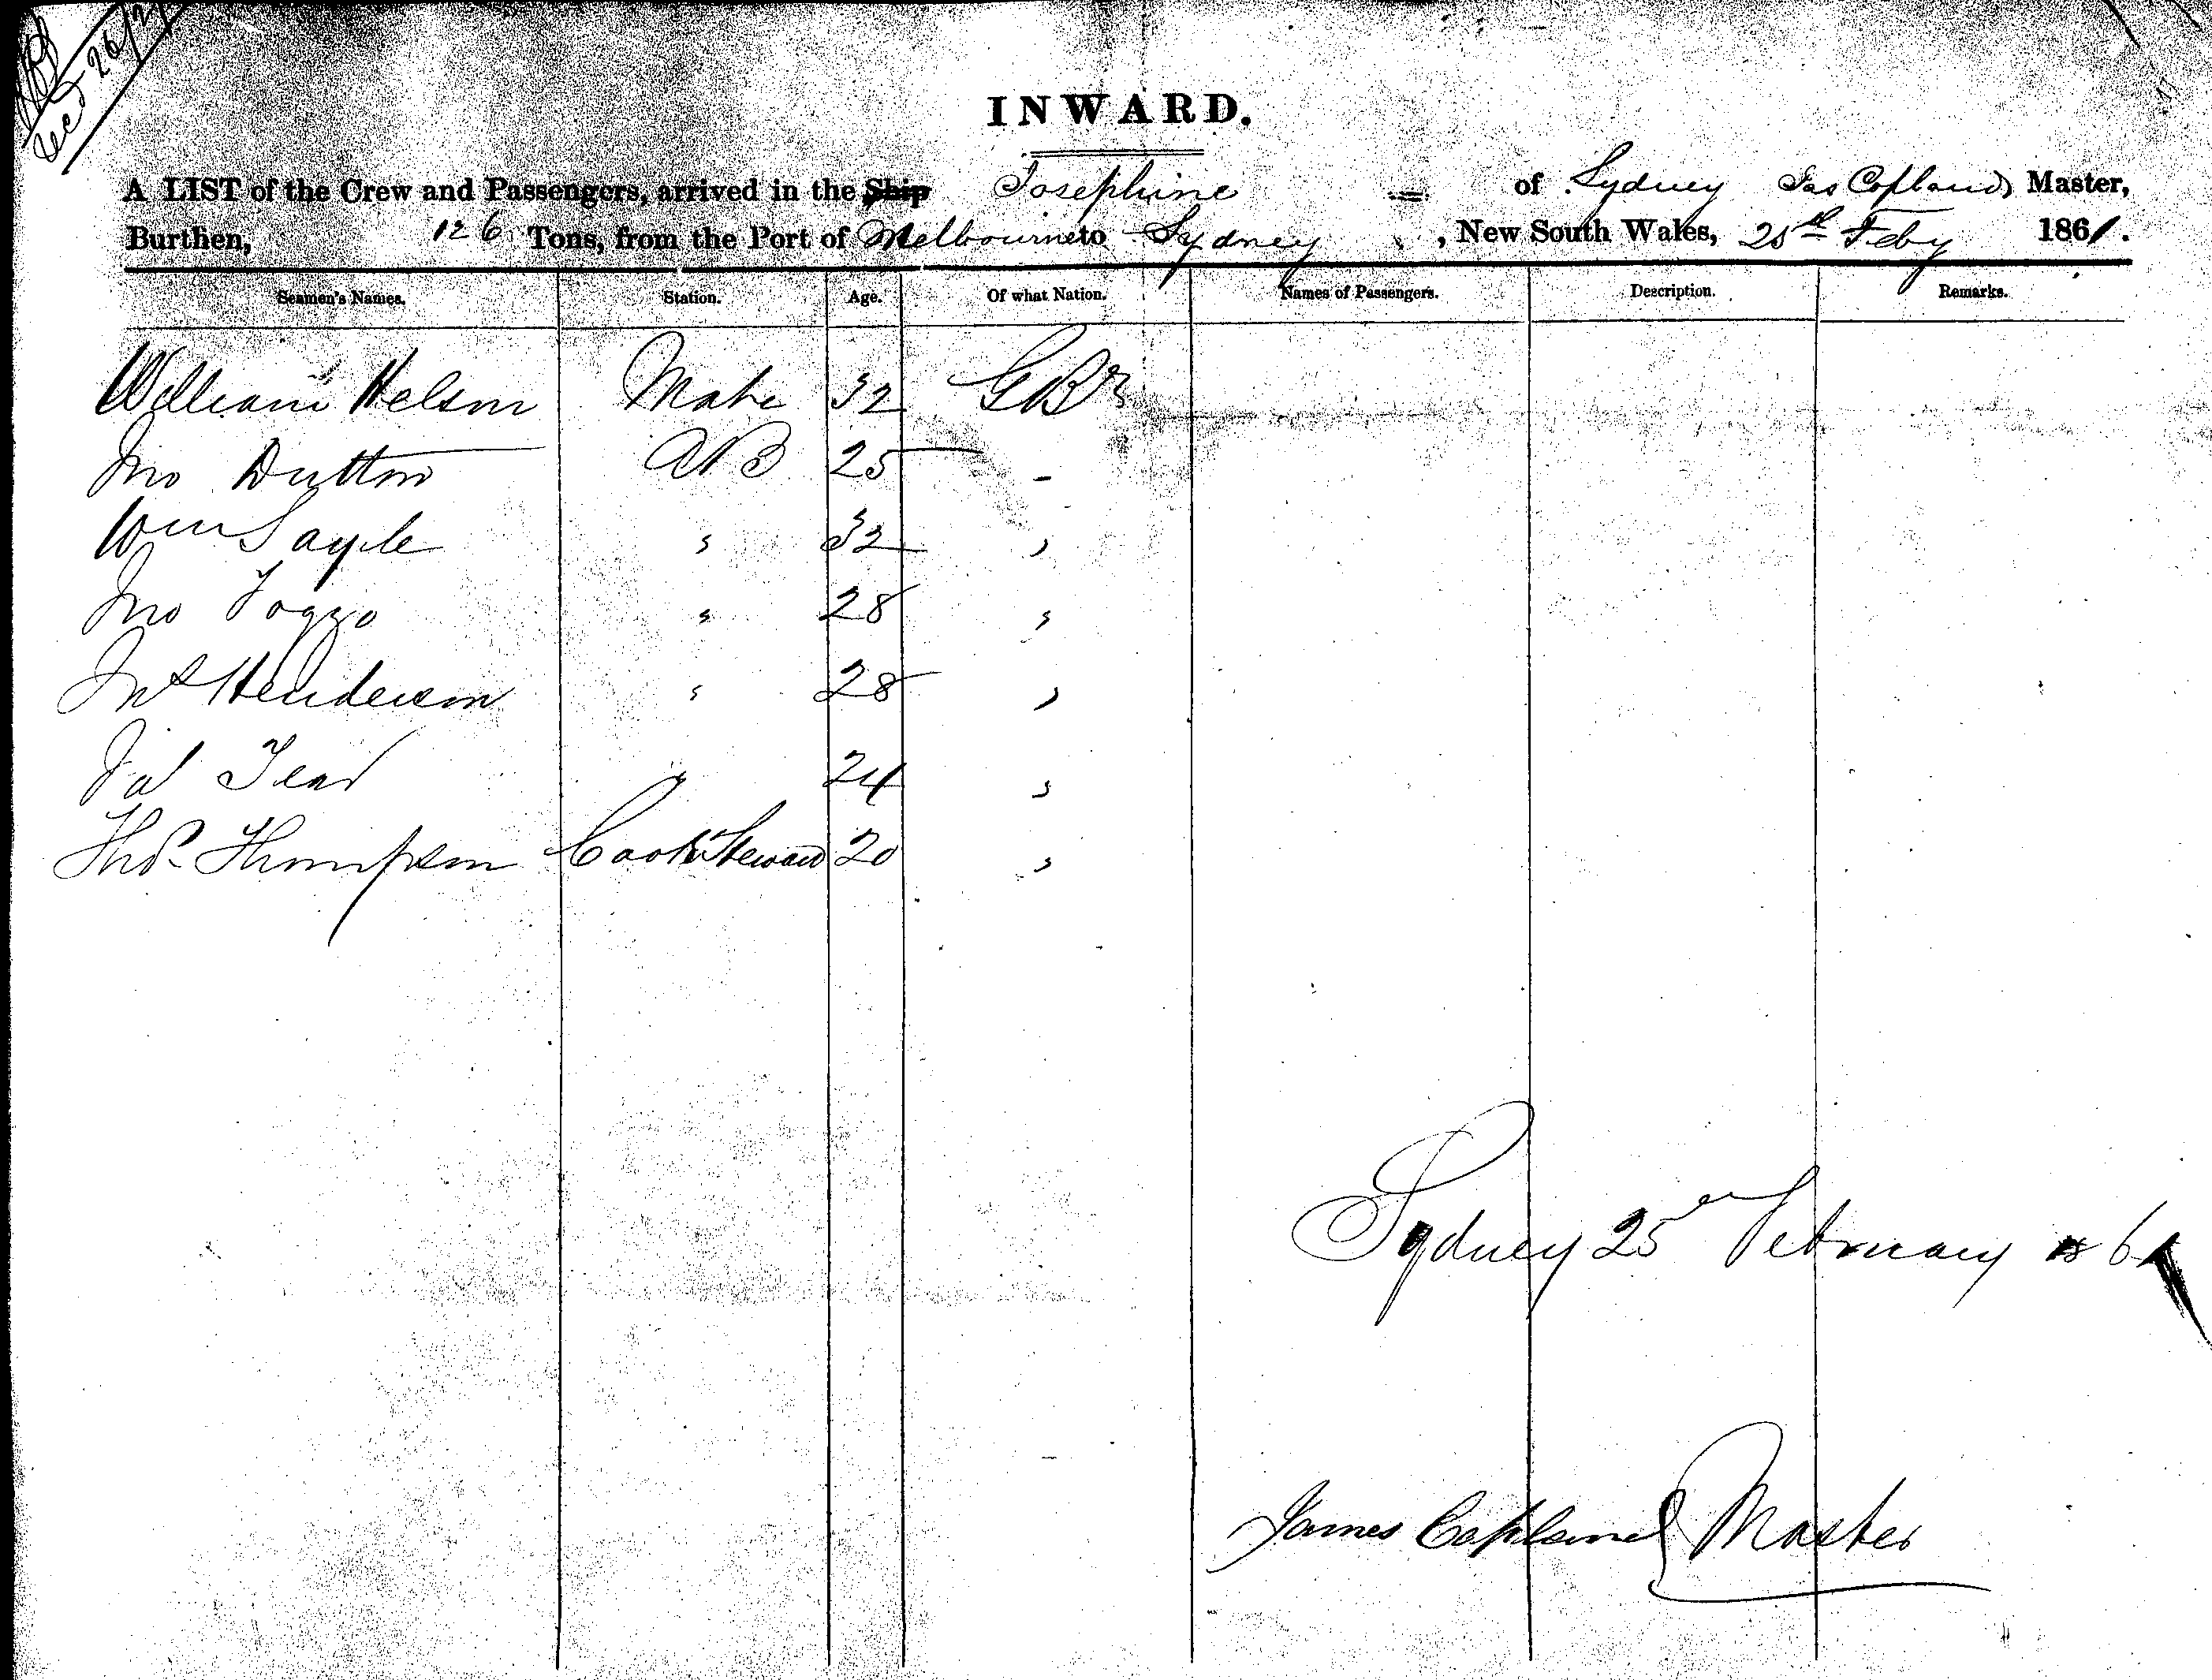 Recd 26/2
INWARD.
A LIST of the Crew and Passengers, arrived in the Ship Josephine of Sydney Jas Copland, Master,
Burthen, 126 Tons, from the Port of Melbourne to Sydney, New South Wales, 25th Feby 1861.
Seamen's Names. Station. Age. Of what Nation. Names of Passengers. Description. Remarks.
William Nelson Mate 32 GBr
Jno Dutton AB 25 -
Wm Sayle " 32 "
Jno Foggo " 28 "
Henderson " 28 "
" 24 "
Thos. Thompson Cook & Steward 20 "
Sydney 25 February 1861
James Copland Master